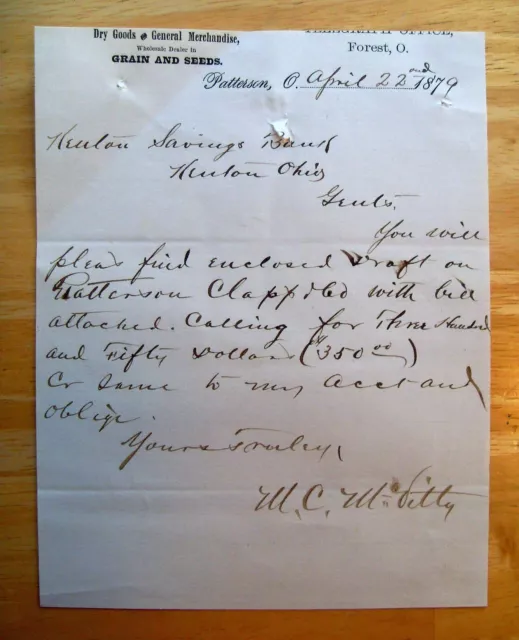 Dry Goods and General Merchandise,
Wholesale Dealer in
GRAIN AND SEEDS.
TELEGRAPH OFFICE,
Forest, O.
Patterson, O. April 22nd 1879
Kenton Savings Bank
Kenton Ohio
Gents.
You will
pleas find enclosed Draft on
Patterson Clapp & Co with bill
attached. Calling for Three Hundred
and Fifty Dollars ($350 00)
Cr same to my acct and
oblige.
Yours Truley,
M. C. McVitty